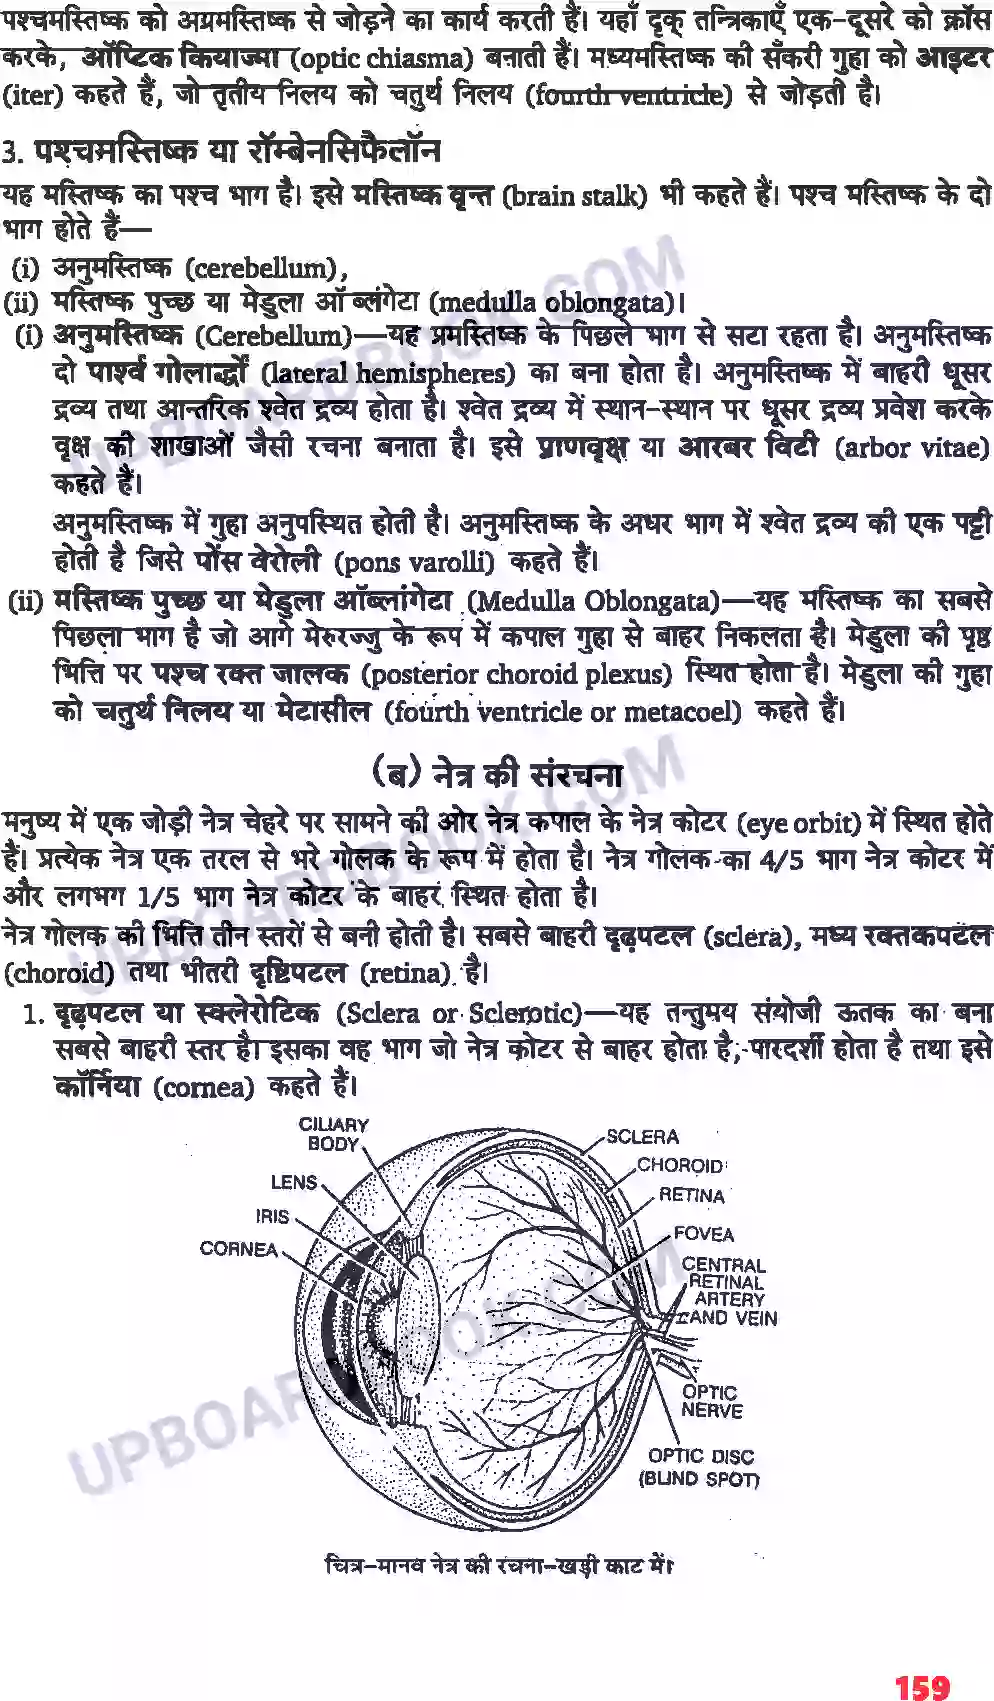 पश्चमस्तिष्क को अग्रमस्तिष्क से जोड़ने का कार्य करती हैं। यहाँ दृक् तन्त्रिकाएँ एक-दूसरे को क्रॉस
करके, ऑप्टिक कियाज्मा (optic chiasma) बनाती हैं। मध्यमस्तिष्क की सँकरी गुहा को आइटर
(iter) कहते हैं, जो तृतीय निलय को चतुर्थ निलय (fourth ventricle) से जोड़ती है।
3. पश्चमस्तिष्क या रॉम्बेनसिफैलॉन
यह मस्तिष्क का पश्च भाग है। इसे मस्तिष्क वृन्त (brain stalk) भी कहते हैं। पश्च मस्तिष्क के दो
भाग होते हैं—
(i) अनुमस्तिष्क (cerebellum),
(ii) मस्तिष्क पुच्छ या मेडुला ऑब्लंगेटा (medulla oblongata)।
(i) अनुमस्तिष्क (Cerebellum)—यह प्रमस्तिष्क के पिछले भाग से सटा रहता है। अनुमस्तिष्क
दो पार्श्व गोलार्द्धों (lateral hemispheres) का बना होता है। अनुमस्तिष्क में बाहरी धूसर
द्रव्य तथा आन्तरिक श्वेत द्रव्य होता है। श्वेत द्रव्य में स्थान-स्थान पर धूसर द्रव्य प्रवेश करके
वृक्ष की शाखाओं जैसी रचना बनाता है। इसे प्राणवृक्ष या आरबर विटी (arbor vitae)
कहते हैं।
अनुमस्तिष्क में गुहा अनुपस्थित होती है। अनुमस्तिष्क के अधर भाग में श्वेत द्रव्य की एक पट्टी
होती है जिसे पोंस वेरोली (pons varolli) कहते हैं।
(ii) मस्तिष्क पुच्छ या मेडुला ऑब्लांगेटा (Medulla Oblongata)—यह मस्तिष्क का सबसे
पिछला भाग है जो आगे मेरुरज्जु के रूप में कपाल गुहा से बाहर निकलता है। मेडुला की पृष्ठ
भित्ति पर पश्च रक्त जालक (posterior choroid plexus) स्थित होता है। मेडुला की गुहा
को चतुर्थ निलय या मेटासील (fourth ventricle or metacoel) कहते हैं।
(ब) नेत्र की संरचना
मनुष्य में एक जोड़ी नेत्र चेहरे पर सामने की ओर नेत्र कपाल के नेत्र कोटर (eye orbit) में स्थित होते
हैं। प्रत्येक नेत्र एक तरल से भरे गोलक के रूप में होता है। नेत्र गोलक का 4/5 भाग नेत्र कोटर में
और लगभग 1/5 भाग नेत्र कोटर के बाहर स्थित होता है।
नेत्र गोलक की भित्ति तीन स्तरों से बनी होती है। सबसे बाहरी दृढ़पटल (sclera), मध्य रक्तकपटल
(choroid) तथा भीतरी दृष्टिपटल (retina) है।
1. दृढ़पटल या स्क्लेरोटिक (Sclera or Sclerotic)—यह तन्तुमय संयोजी ऊतक का बना
सबसे बाहरी स्तर है। इसका वह भाग जो नेत्र कोटर से बाहर होता है, पारदर्शी होता है तथा इसे
कॉर्निया (cornea) कहते हैं।
CILIARY
BODY
LENS
IRIS
CORNEA
SCLERA
CHOROID
RETINA
FOVEA
CENTRAL
RETINAL
ARTERY
AND VEIN
OPTIC
NERVE
OPTIC DISC
(BLIND SPOT)
चित्र-मानव नेत्र की रचना-खड़ी काट में।
159
UPBOARDBOOK.COM
UPBOARDBOOK.COM
UPBOARDBOOK.COM